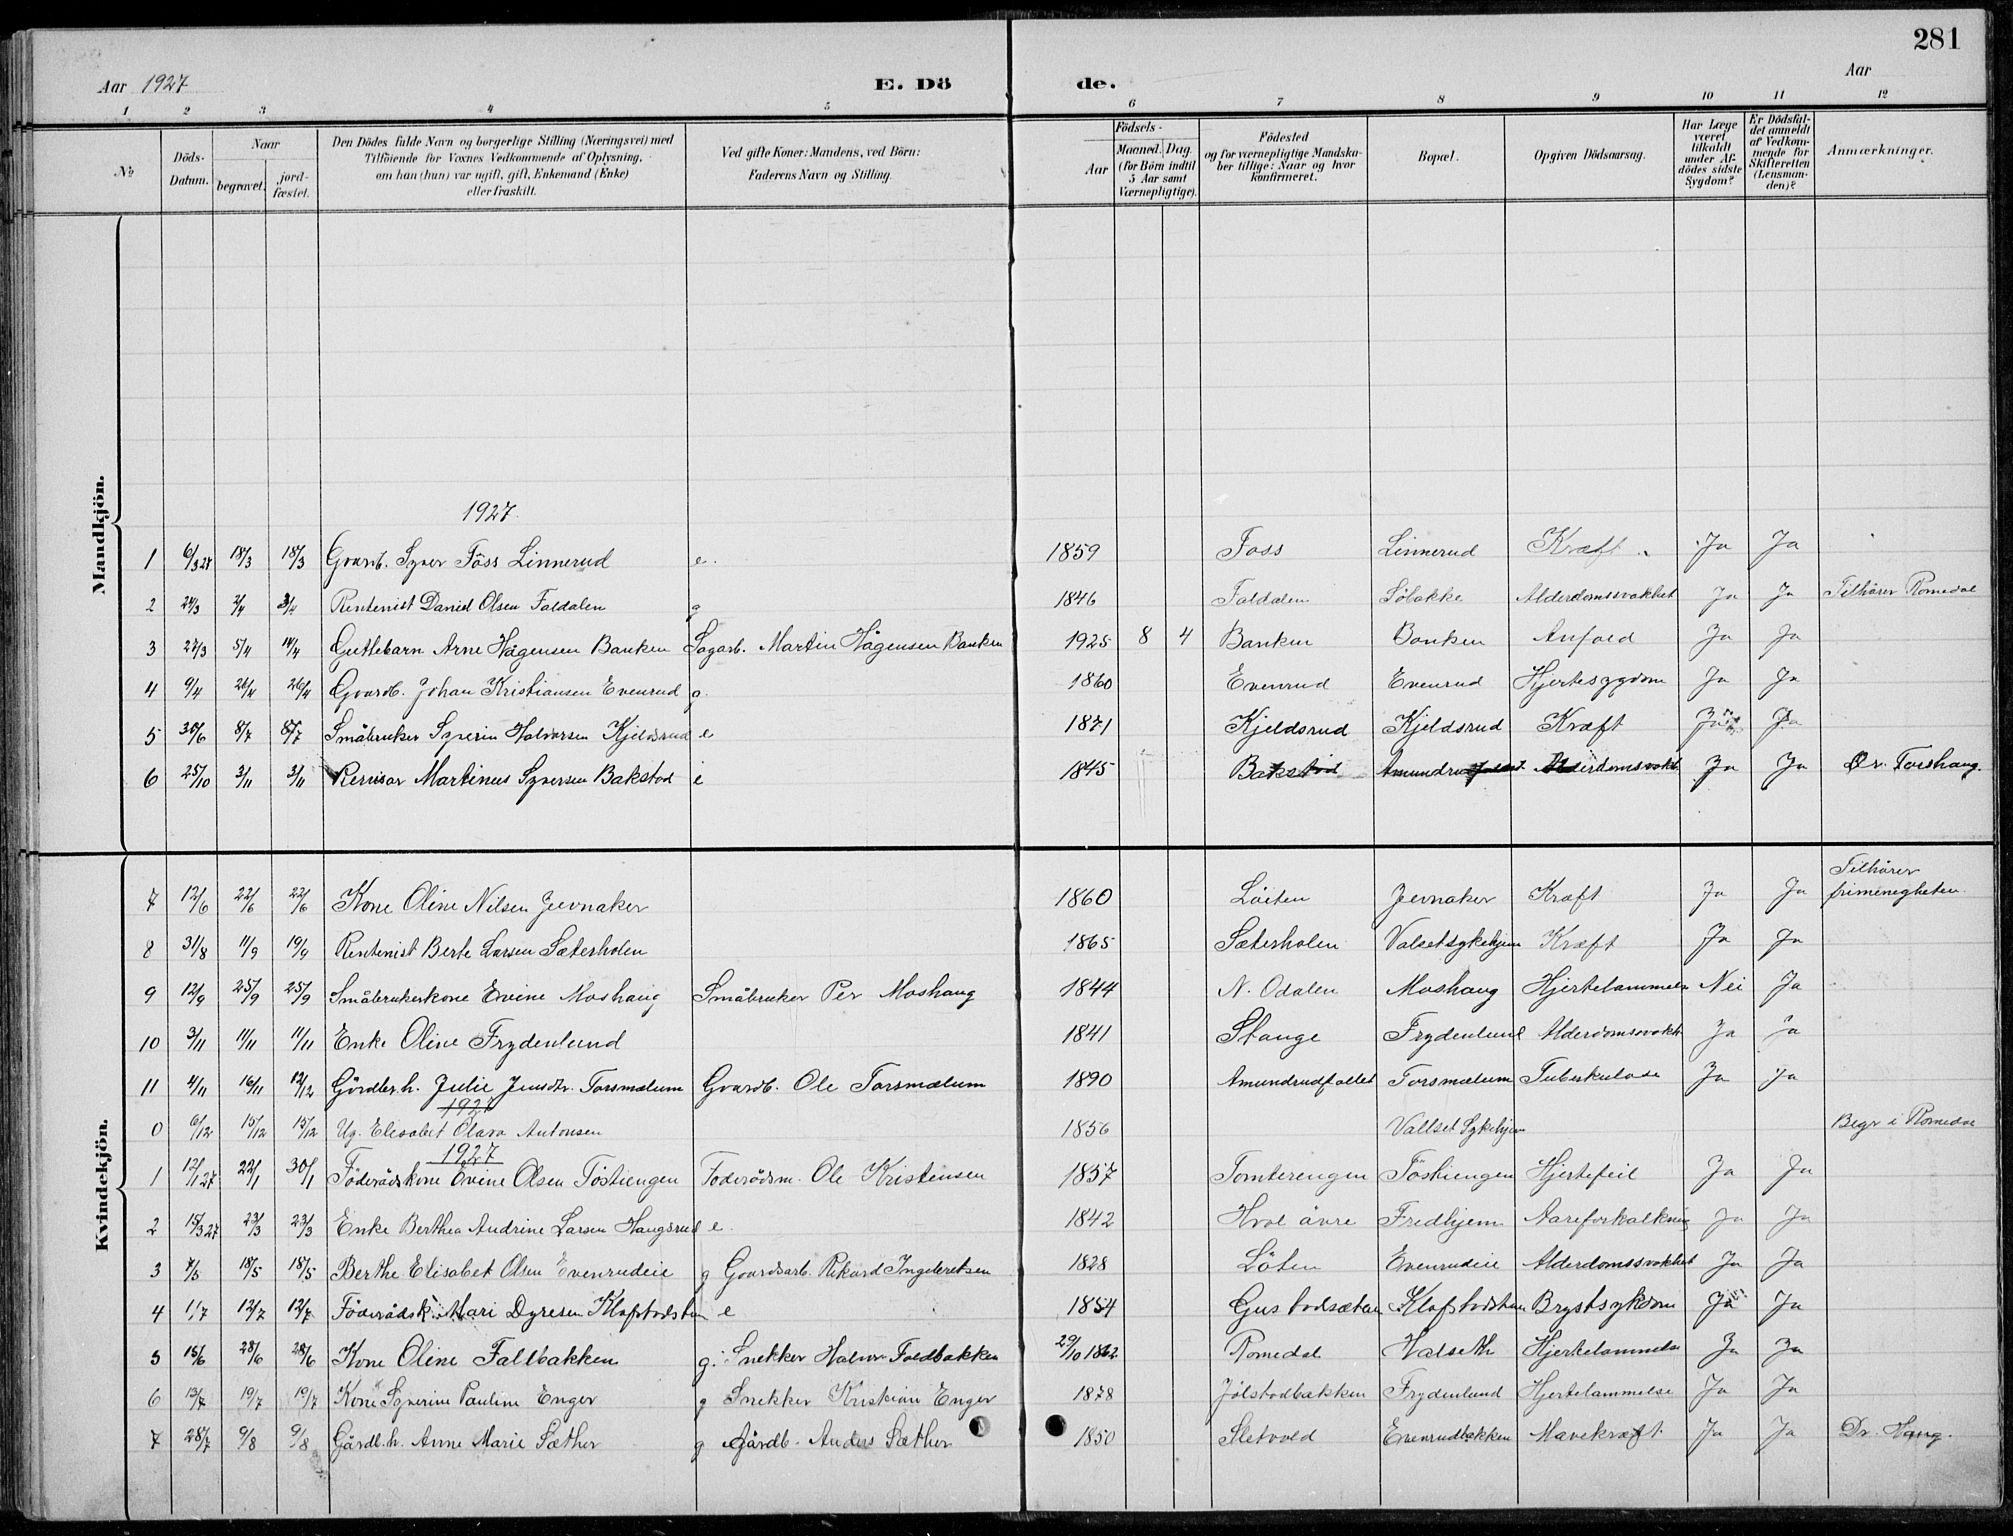 281
Aar 1927 E. Dö de. Aar
1 2 3 4 5 6 7 8 9 10 11 12
№
Döds-Datum.
Naar
begravet.
jordfæstet.
Den Dödes fulde Navn og borgerlige Stilling (Næringsvei) med
Tilföiende for Voxnes Vedkommende af Oplysning,
om han (hun) var ugift, gift, Enkemand (Enke)
eller fraskilt.
Ved gifte Koner: Mandens, ved Börn:
Faderens Navn og Stilling.
Födsels-
Aar
Maaned. Dag.
(for Börn indtil
5 Aar samt
Værnepligtige).
Födested
og for værnepligtige Mandskaber tillige: Naar og hvor
konfirmeret.
Bopæl.
Opgiven Dödsaarsag.
Har Læge
været
tilkaldt
under Afdödes sidste
Sygdom?
Er Dödsfaldet anmeldt
af Vedkommende for
Skifteretten
(Lensmanden)?
Anmærkninger.
Mandkjön.
1927.
1 6/3 27 18/3 18/3 Gaardb. Syver Foss Linnerud e. 1859 Foss Linnerud Kræft Ja Ja
2 24/3 2/4 3/4 Rentenist Daniel Olsen Faldalen g 1846 Faldalen Sölakke Alderdomssvakhet Ja Ja Tilhörer Romedal
3 27/3 5/4 14/4 Guttebarn Arne Hågensen Banken Sagarb. Martin Hågensen Banken 1925 8 4 Banken Banken Anfald Ja Ja
4 9/4 26/4 26/4 Gaardb. Johan Kristiansen Evenrud g. 1860 Evenrud Evenrud Hjertesygdom Ja Ja
5 30/6 8/7 8/7 Småbruker Syverin Halvorsen Kjeldsrud e 1871 Kjeldsrud Kjeldsrud Kræft Ja Ja
6 25/10 3/11 3/11 Revisor Martinus Syversen Bakstad e 1845 Bakstad Alderdomssvakh Ja Ja Dr. Torshaug.
Kvindekjön.
7 12/6 22/6 22/6 Kone Oline Nilsen Jevnaker 1860 Löiten Jevnaker Kræft Ja Ja Tilhörer
frimenigheten.
8 31/8 11/9 19/9 Rentenist Berte Larsen Sæterholen 1865 Sæterholen Valsetsykehjem Kræft Ja Ja
9 12/9 25/9 25/9 Småbrukerkone Evine Moshaug Småbruker Per Moshaug 1844 N. Odalen Moshaug Hjertelammelse Nei Ja
10 3/11 11/11 11/11 Enke Oline Frydenlund 1841 Stange Frydenlund Alderdomssvakh Ja Ja
11 4/11 16/11 12/12 Gårdbr.h. Julie Jensdtr. Torsmælum Gaardb. Ole Torsmælum 1890 Amundrudfallet Torsmælum Tuberkulose Ja Ja
1927
0 6/12 15/12 15/12 Ug. Elisabet Olava Antonsen 1856 Vallset Sykehjem Begr i Romedal
1927
1 12/1 27 22/1 30/1 Föderådskone Evine Olsen Töstiengen Foderådsm. Ole Kristensen 1837 Tomterengen Töstiengen Hjertefeil Ja Ja
2 15/3 27 23/3 23/3 Enke Berthea Andrine Larsen Haugsrud e. 1842 Hvol övre Fredhjem Aareforkalkning Ja Ja
3 7/5 18/5 18/5 Berthe Elisabet Olsen Evenrudeie g Gaardsarb. Rikard Ingebretsen 1828 Löten Evenrudeie Alderdomssvakhet Ja Ja
4 1/7 12/7 12/7 Föderådsk. Mari Dyresen e 1854 Brystsykdom Ja Ja
5 15/6 28/6 28/6 Kone Oline Fallbakken g. Snekker Halvor Faldbakken 29/10 1862 Romedal Halseth Hjertelammelse Ja Ja
6 13/7 19/7 19/7 Kone Syverine Pauline Enger g Snekker Kristian Enger 1878 Jölstadbakken Frydenlund Hjertelammelse Ja Ja
7 28/7 9/8 9/8 Gårdb.h. Anne Marie Sæther g Gårdb. Anders Sæther 1850 Sletvold Evenrudbakken Mavekræft. Ja Ja Dr. Haug.